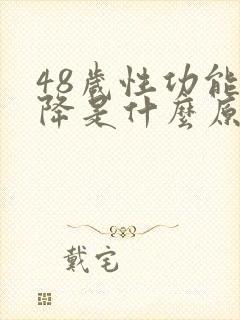 48歲性功能
降是什麼原
戴宅